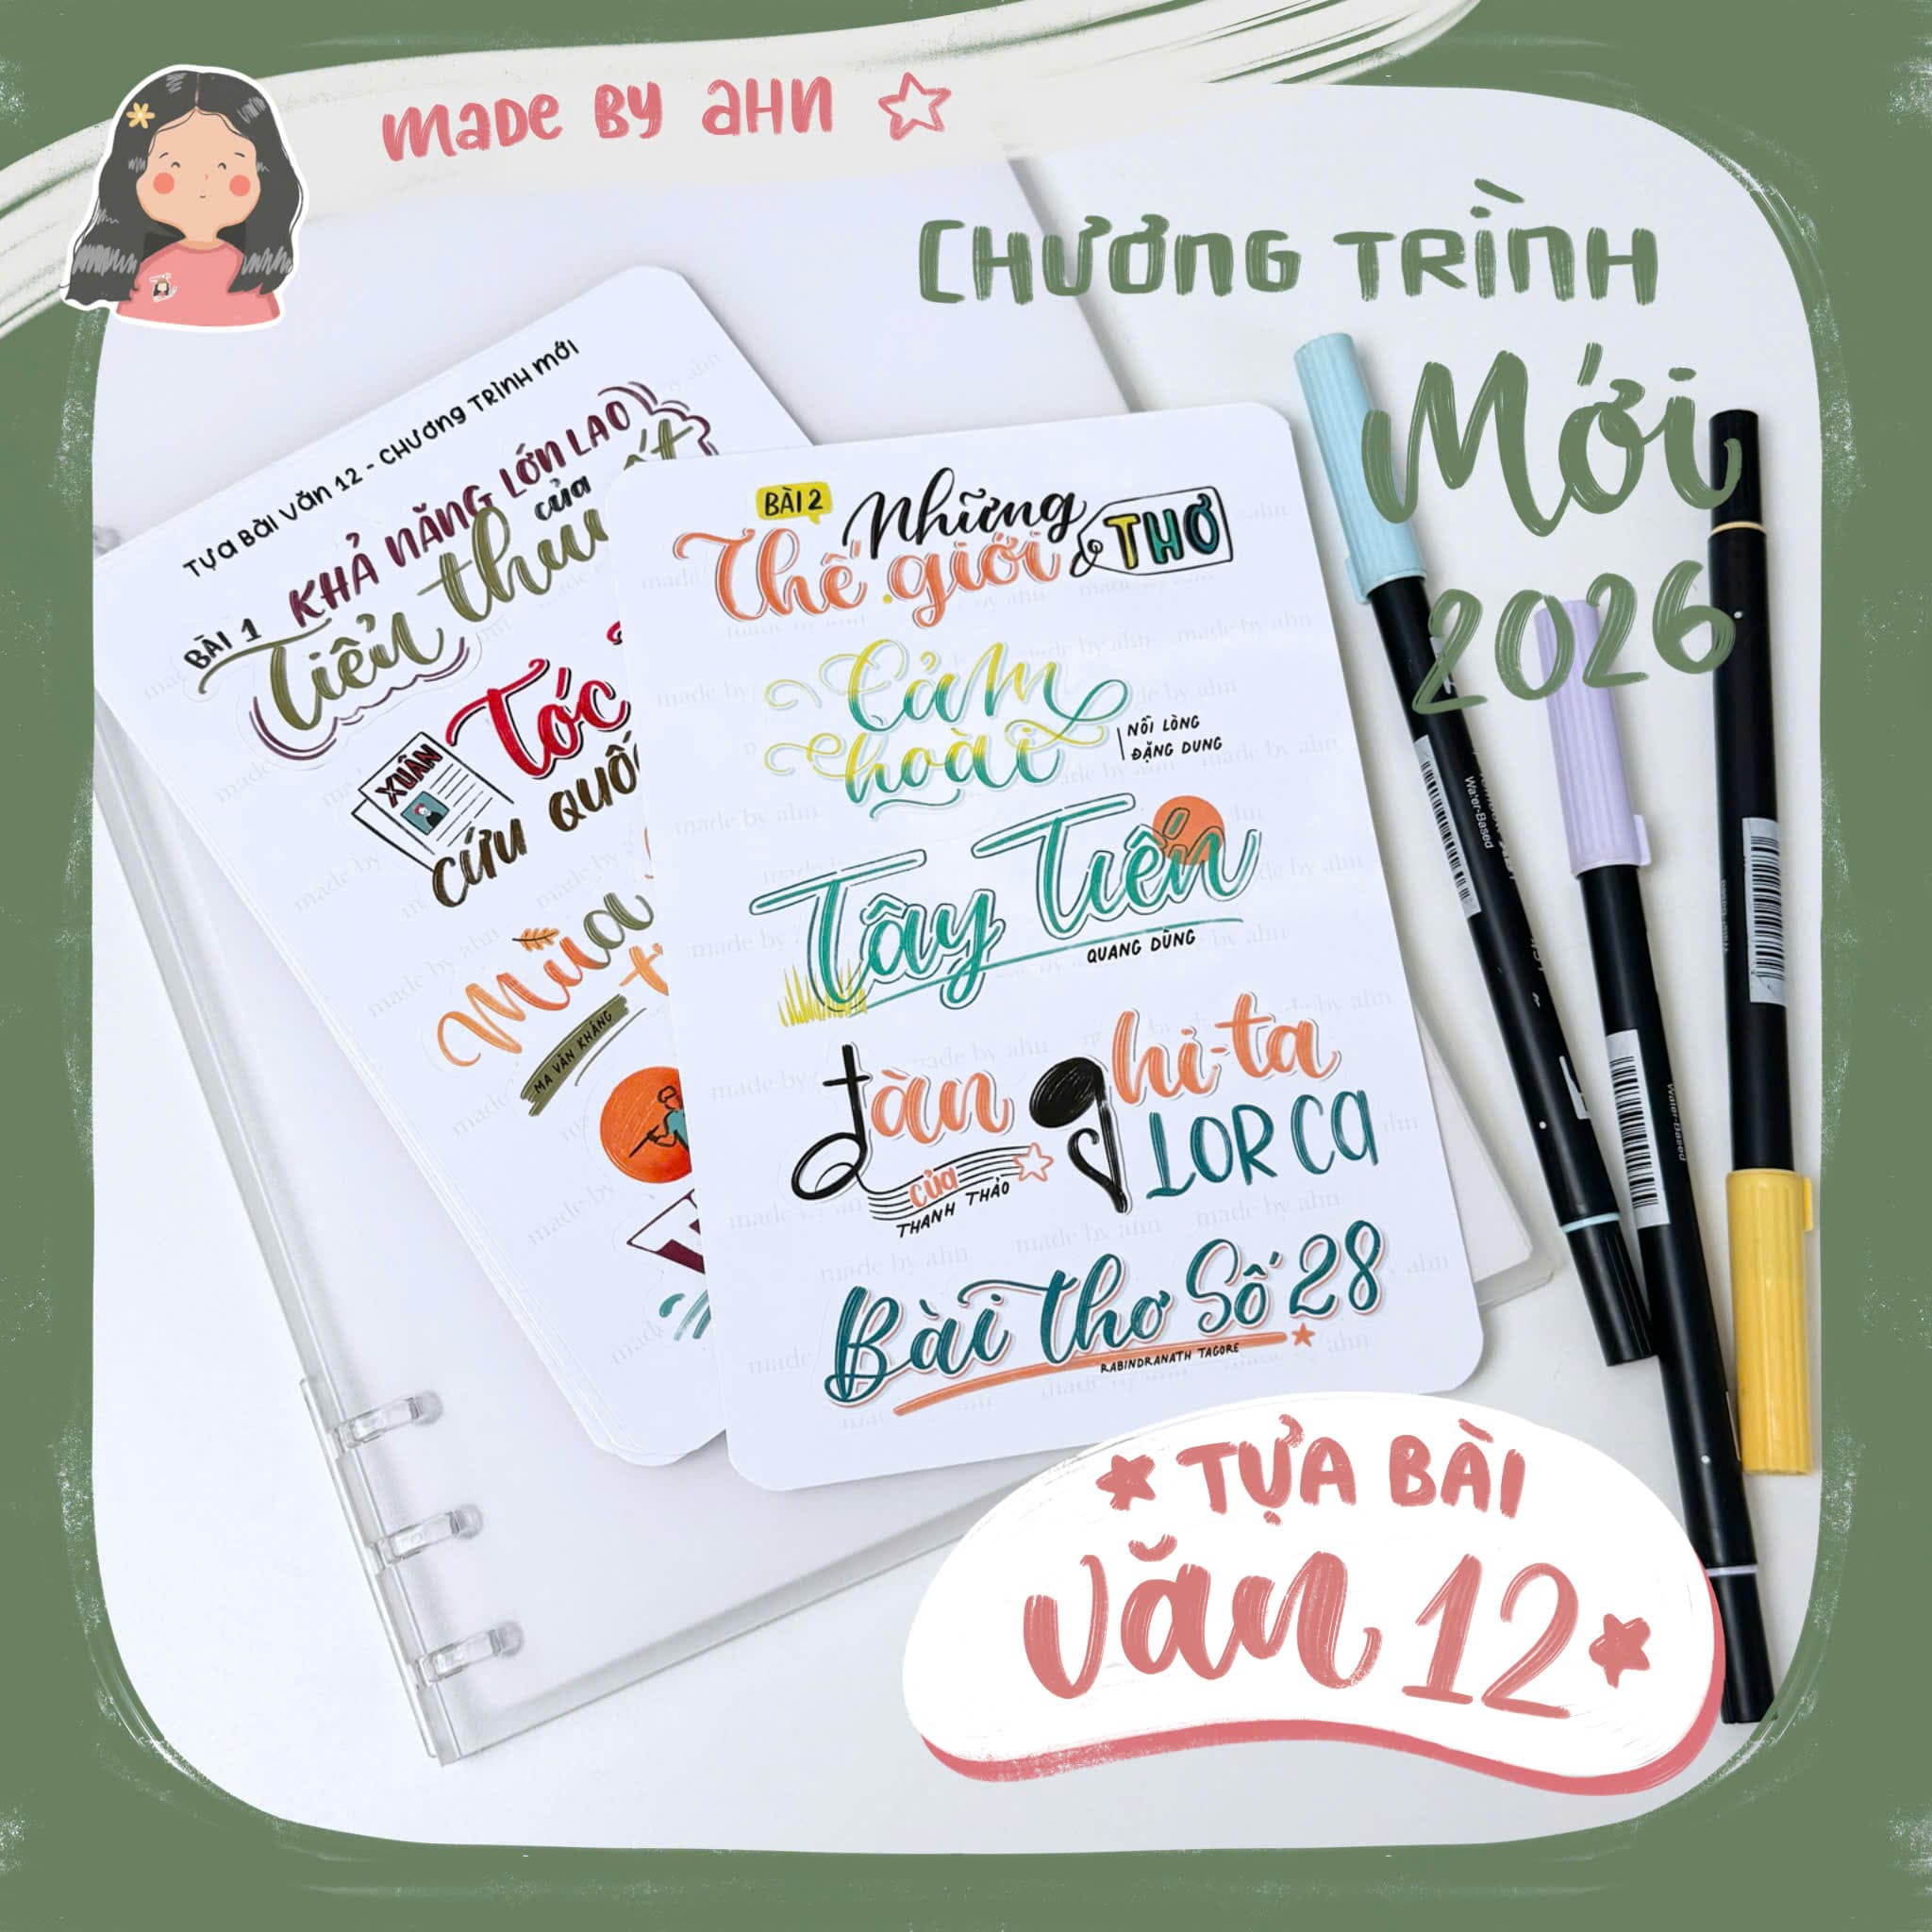 made by ahn
CHƯƠNG TRÌNH
Mới
2026
Tựa Bài Văn 12 - Chương Trình Mới
BÀI 1
KHẢ NĂNG LỚN LAO
của
Tiểu thu
XUÂN
Tóc
CỨU QUỐ
Mùa
MA VĂN KHÁNG
BÀI 2
Những
Thế giới THƠ
Cảm
hoài
NỖI LÒNG
ĐẶNG DUNG
Tây Tiến
QUANG DŨNG
Đàn ghi-ta
của LORCA
THANH THẢO
Bài thơ Số 28
RABINDRANATH TAGORE
Water-Based
TỰA BÀI
Văn 12